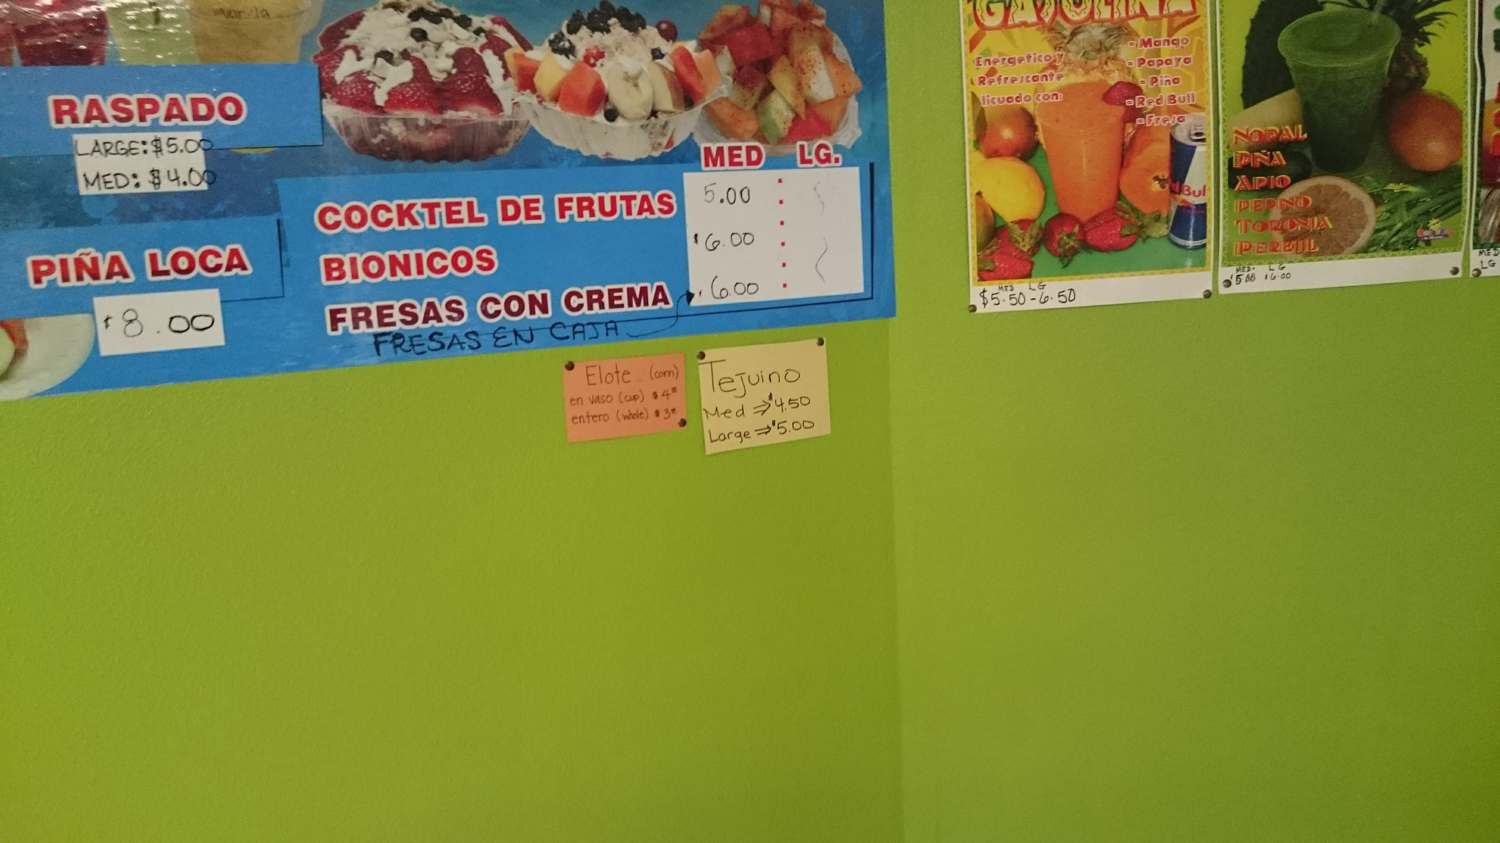 RASPADO
LARGE: $5.00
MED: $4.00
PIÑA LOCA
$8.00
MED LG.
COCKTEL DE FRUTAS 5.00 :
BIONICOS $6.00 :
FRESAS CON CREMA 6.00 :
FRESAS EN CAJA
Elote (corn)
en vaso (cup) $4
entero (whole) $3
Tejuino
Med ⇒ $4.50
Large ⇒ $5.00
GASOLINA
Energetico y
Refrescante
licuado con:
- Mango
- Papaya
- Piña
- Red Bull
- Fresa
MED LG
$5.50 - 6.50
NOPAL
PIÑA
APIO
PEPINO
TORONJA
PEREJIL
MED. LG
$5.00 $6.00
MED
LG